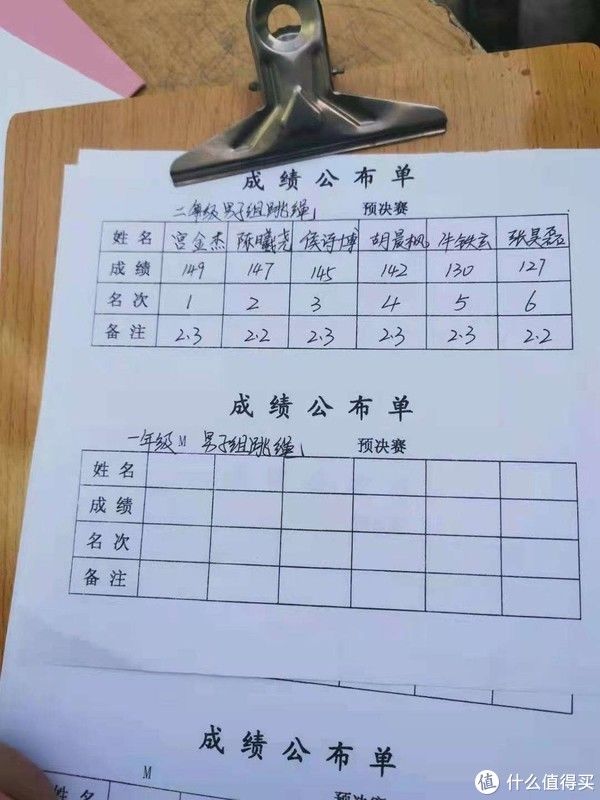 成绩公布单
二年级男子组跳绳 预决赛
姓名 宫金杰 陈曦尧 侯诗博 胡晨枫 牛铁玄 张昊磊
成绩 149 147 145 142 130 127
名次 1 2 3 4 5 6
备注 2.3 2.2 2.3 2.3 2.3 2.2
成绩公布单
一年级 M 男子组跳绳 预决赛
姓名
成绩
名次
备注
成绩公布单
M 预决赛
姓名
值 什么值得买